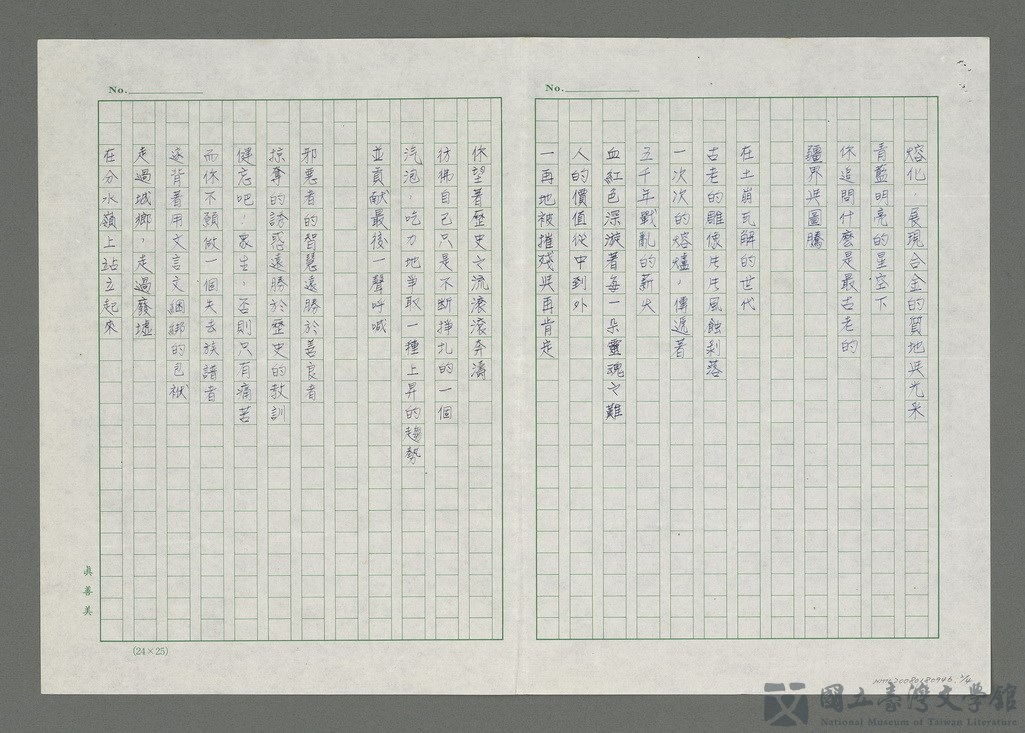 No.
熔化，展現合金的質地與光采
青藍明亮的星空下
你追問什麼是最古老的
疆界與圖騰
在土崩瓦解的世代
古老的雕像片片風蝕剝落
一次次的熔爐，傳遞著
五千年戰亂的薪火
血紅色深漩著每一朵靈魂之難
人的價值從中到外
一再地被摧殘與再肯定
No.
你望著歷史之流滾滾奔濤
彷彿自己只是不斷掙扎的一個
汽泡，吃力地爭取一種上昇的趨勢
並貢献最後一聲呼喊
邪惡者的智慧遠勝於善良者
掠奪的誘惑遠勝於歷史的教訓
健忘吧，眾生，否則只有痛苦
而你不願做一個失去族譜者
逐背著用文言文綑綁的包袱
走過城鄉，走過廢墟
在分水嶺上站立起來
真善美
(24×25)
國立臺灣文學館
National Museum of Taiwan Literature